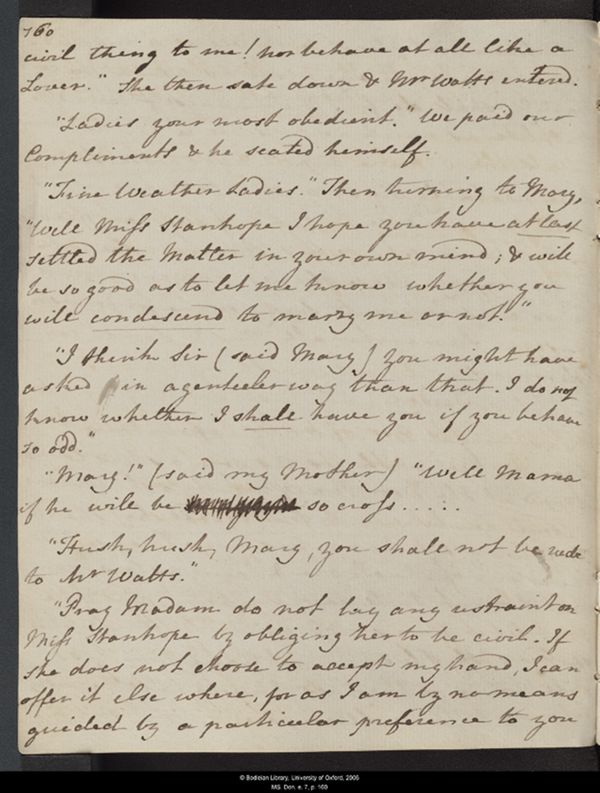 160
civil thing to me! nor behave at all like a
Lover." She then sate down & Mr Watts entered.
"Ladies your most obedient." We paid our
Compliments & he seated himself.
"Fine Weather Ladies." Then turning to Mary,
"Well Miss Stanhope I hope you have at last
settled the Matter in your own mind; & will
be so good as to let me know whether you
will condescend to marry me or not."
"I think Sir (said Mary) you might have
asked in a genteeler way than that. I do not
know whether I shall have you if you behave
so odd."
"Mary!" (said my Mother) "Well Mama
if he will be so cross . . . . .
"Hush, hush, Mary, you shall not be rude
to Mr Watts."
"Pray Madam do not lay any restraint on
Miss Stanhope by obliging her to be civil. If
she does not choose to accept my hand, I can
offer it else where, for as I am by no means
guided by a particular preference to you
© Bodleian Library, University of Oxford, 2006
MS. Don. e. 7, p. 160